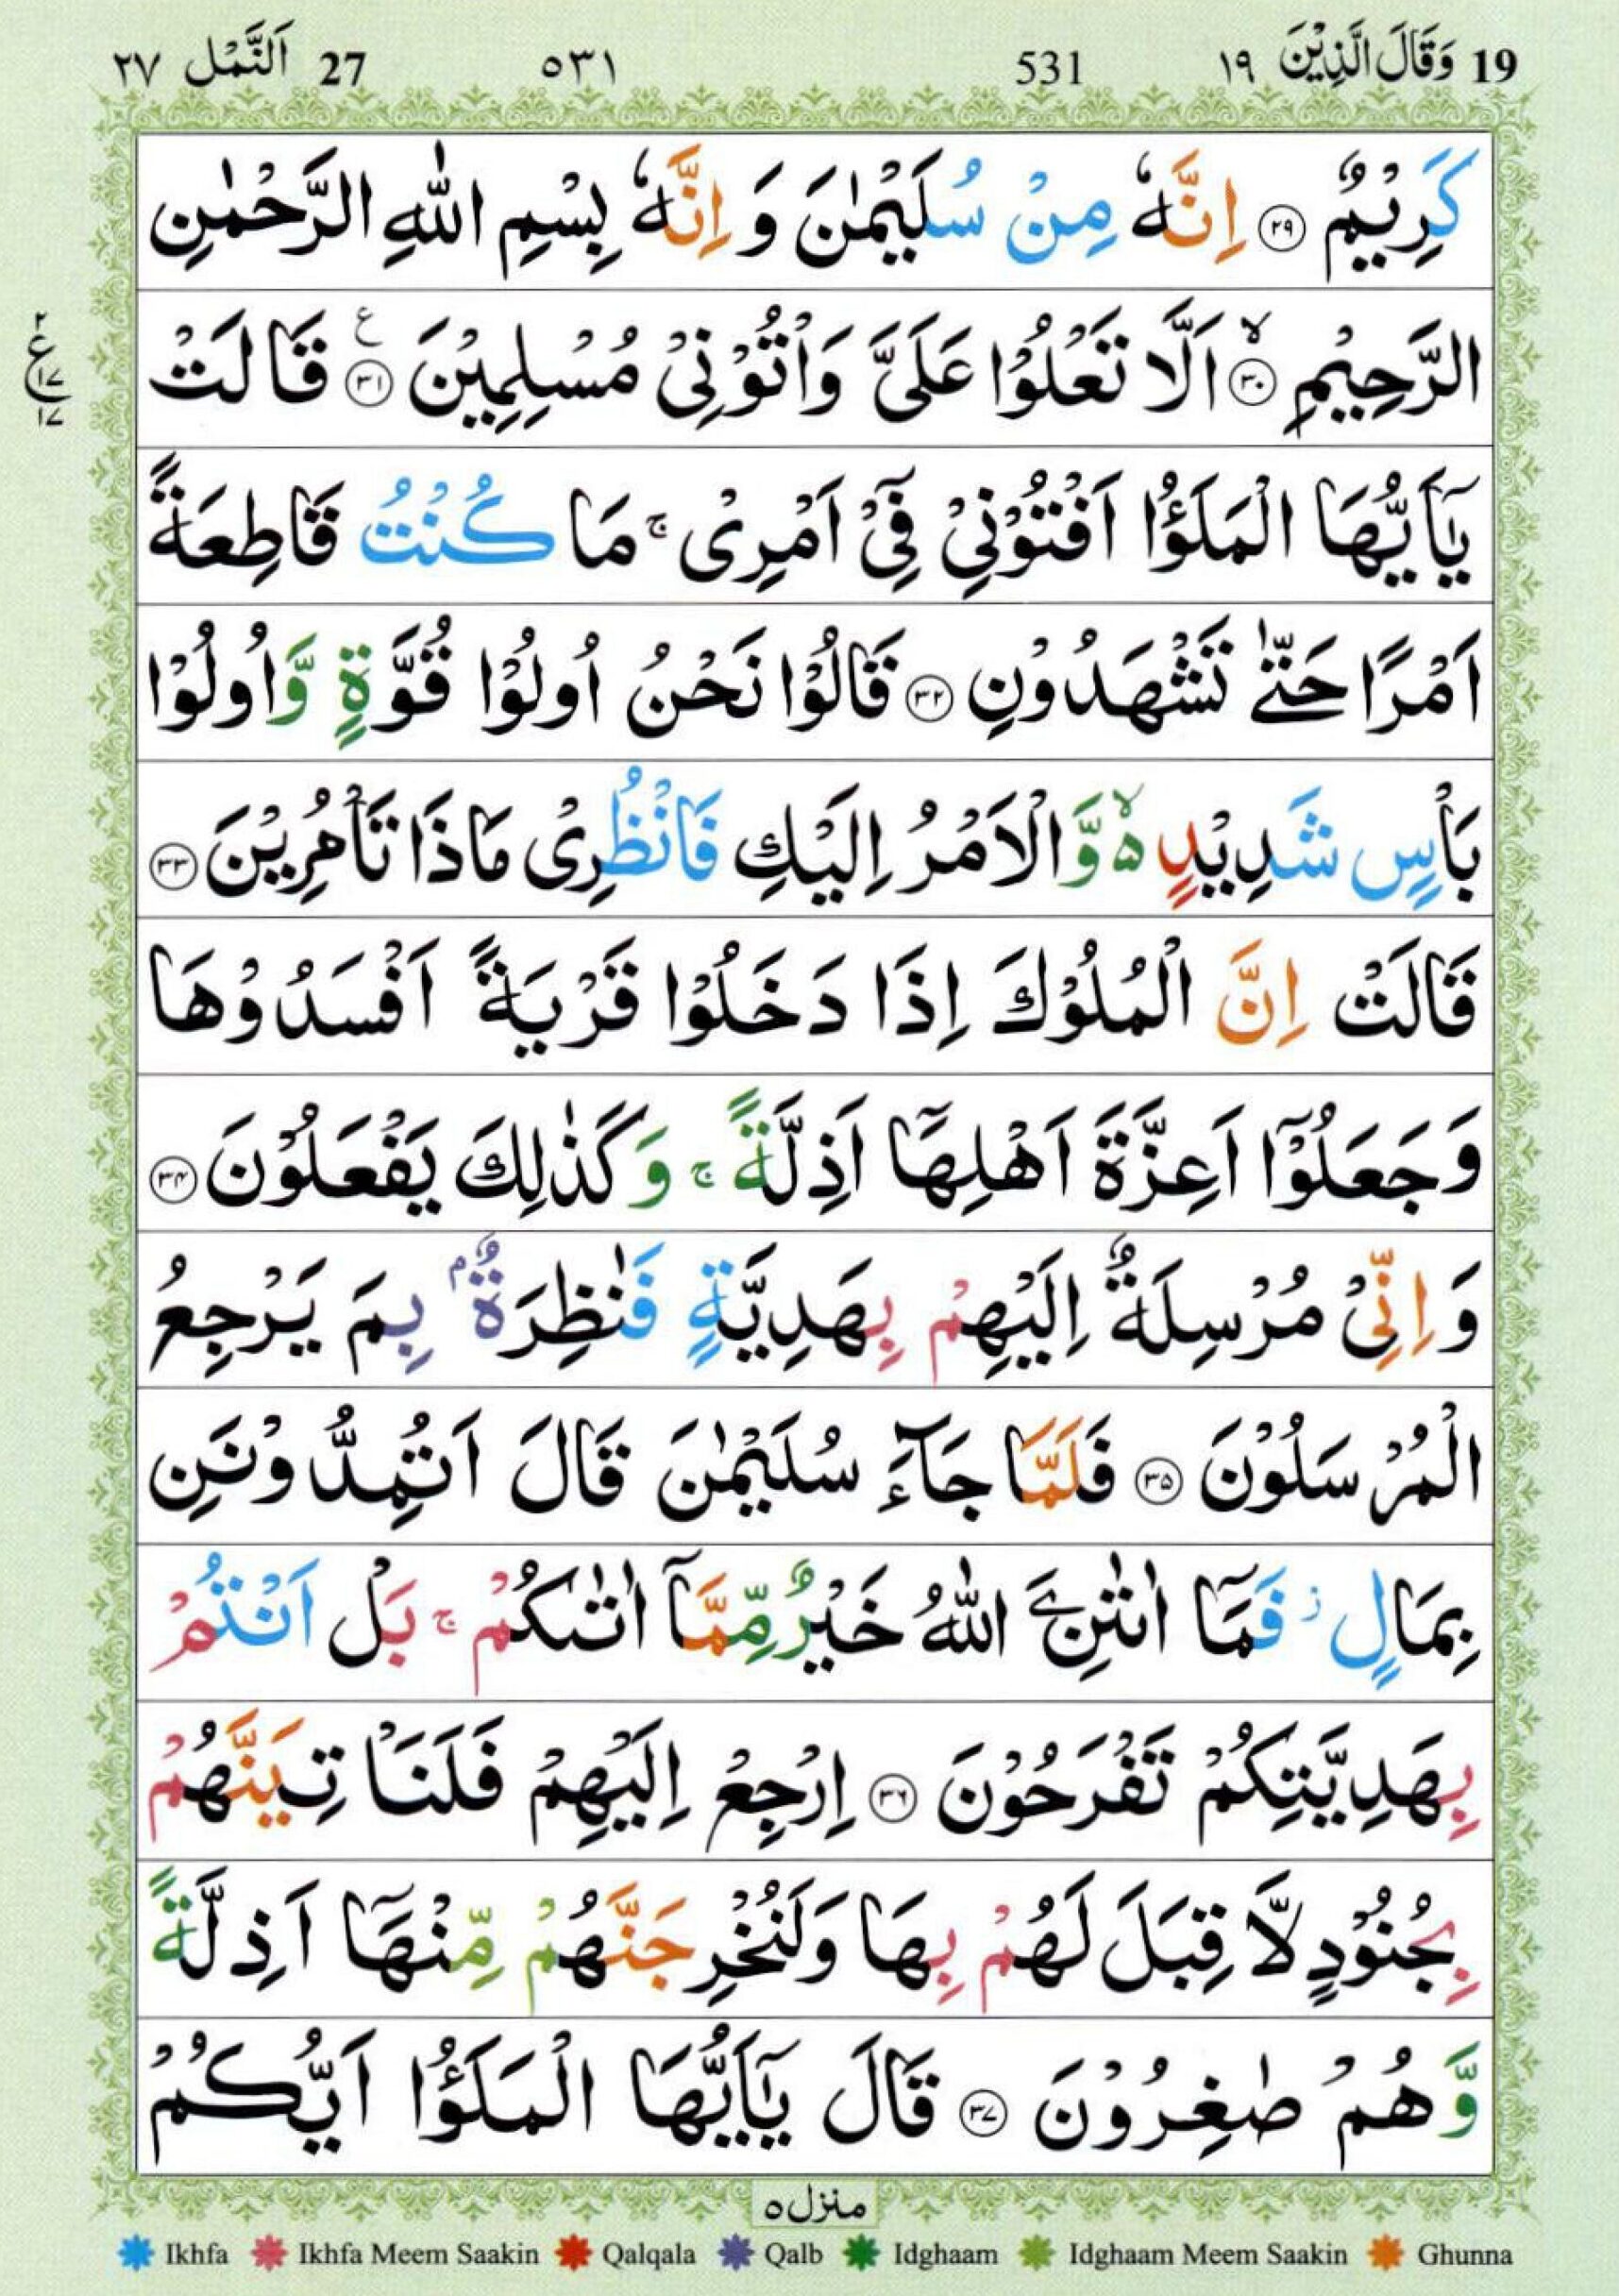 19 وَقَالَ الَّذِيْنَ ١٩ 531 ٥٣١ 27 اَلنَّمْل ٢٧
كَرِيْمٌ ۟﴿۲۹﴾ اِنَّهٗ مِنْ سُلَيْمٰنَ وَ اِنَّهٗ بِسْمِ اللّٰهِ الرَّحْمٰنِ
الرَّحِيْمِ ﴿۳۰﴾ۙ اَلَّا تَعْلُوْا عَلَيَّ وَاْتُوْنِيْ مُسْلِمِيْنَ ﴿۳۱﴾ع قَالَتْ
يٰۤاَيُّهَا الْمَلَؤُا اَفْتُوْنِيْ فِيْۤ اَمْرِيْ ۚ مَا كُنْتُ قَاطِعَةً
اَمْرًا حَتّٰى تَشْهَدُوْنِ ﴿۳۲﴾ قَالُوْا نَحْنُ اُولُوْا قُوَّةٍ وَّاُولُوْا
بَاْسٍ شَدِيْدٍ ۙ۬ وَّالْاَمْرُ اِلَيْكِ فَانْظُرِيْ مَاذَا تَاْمُرِيْنَ ﴿۳۳﴾
قَالَتْ اِنَّ الْمُلُوْكَ اِذَا دَخَلُوْا قَرْيَةً اَفْسَدُوْهَا
وَجَعَلُوْۤا اَعِزَّةَ اَهْلِهَاۤ اَذِلَّةً ۚ وَكَذٰلِكَ يَفْعَلُوْنَ ﴿۳۴﴾
وَ اِنِّيْ مُرْسِلَةٌ اِلَيْهِمْ بِهَدِيَّةٍ فَنٰظِرَةٌۢ بِمَ يَرْجِعُ
الْمُرْسَلُوْنَ ﴿۳۵﴾ فَلَمَّا جَآءَ سُلَيْمٰنَ قَالَ اَتُمِدُّوْنَنِ
بِمَالٍ ؗ فَمَاۤ اٰتٰىنِۦَ اللّٰهُ خَيْرٌ مِّمَّاۤ اٰتٰىكُمْ ۚ بَلْ اَنْتُمْ
بِهَدِيَّتِكُمْ تَفْرَحُوْنَ ﴿۳۶﴾ اِرْجِعْ اِلَيْهِمْ فَلَنَاْتِيَنَّهُمْ
بِجُنُوْدٍ لَّا قِبَلَ لَهُمْ بِهَا وَلَنُخْرِجَنَّهُمْ مِّنْهَاۤ اَذِلَّةً
وَّهُمْ صٰغِرُوْنَ ﴿۳۷﴾ قَالَ يٰۤاَيُّهَا الْمَلَؤُا اَيُّكُمْ
منزل ٥
Ikhfa Ikhfa Meem Saakin Qalqala Qalb Idghaam Idghaam Meem Saakin Ghunna
٢
ع
١٧
١٧